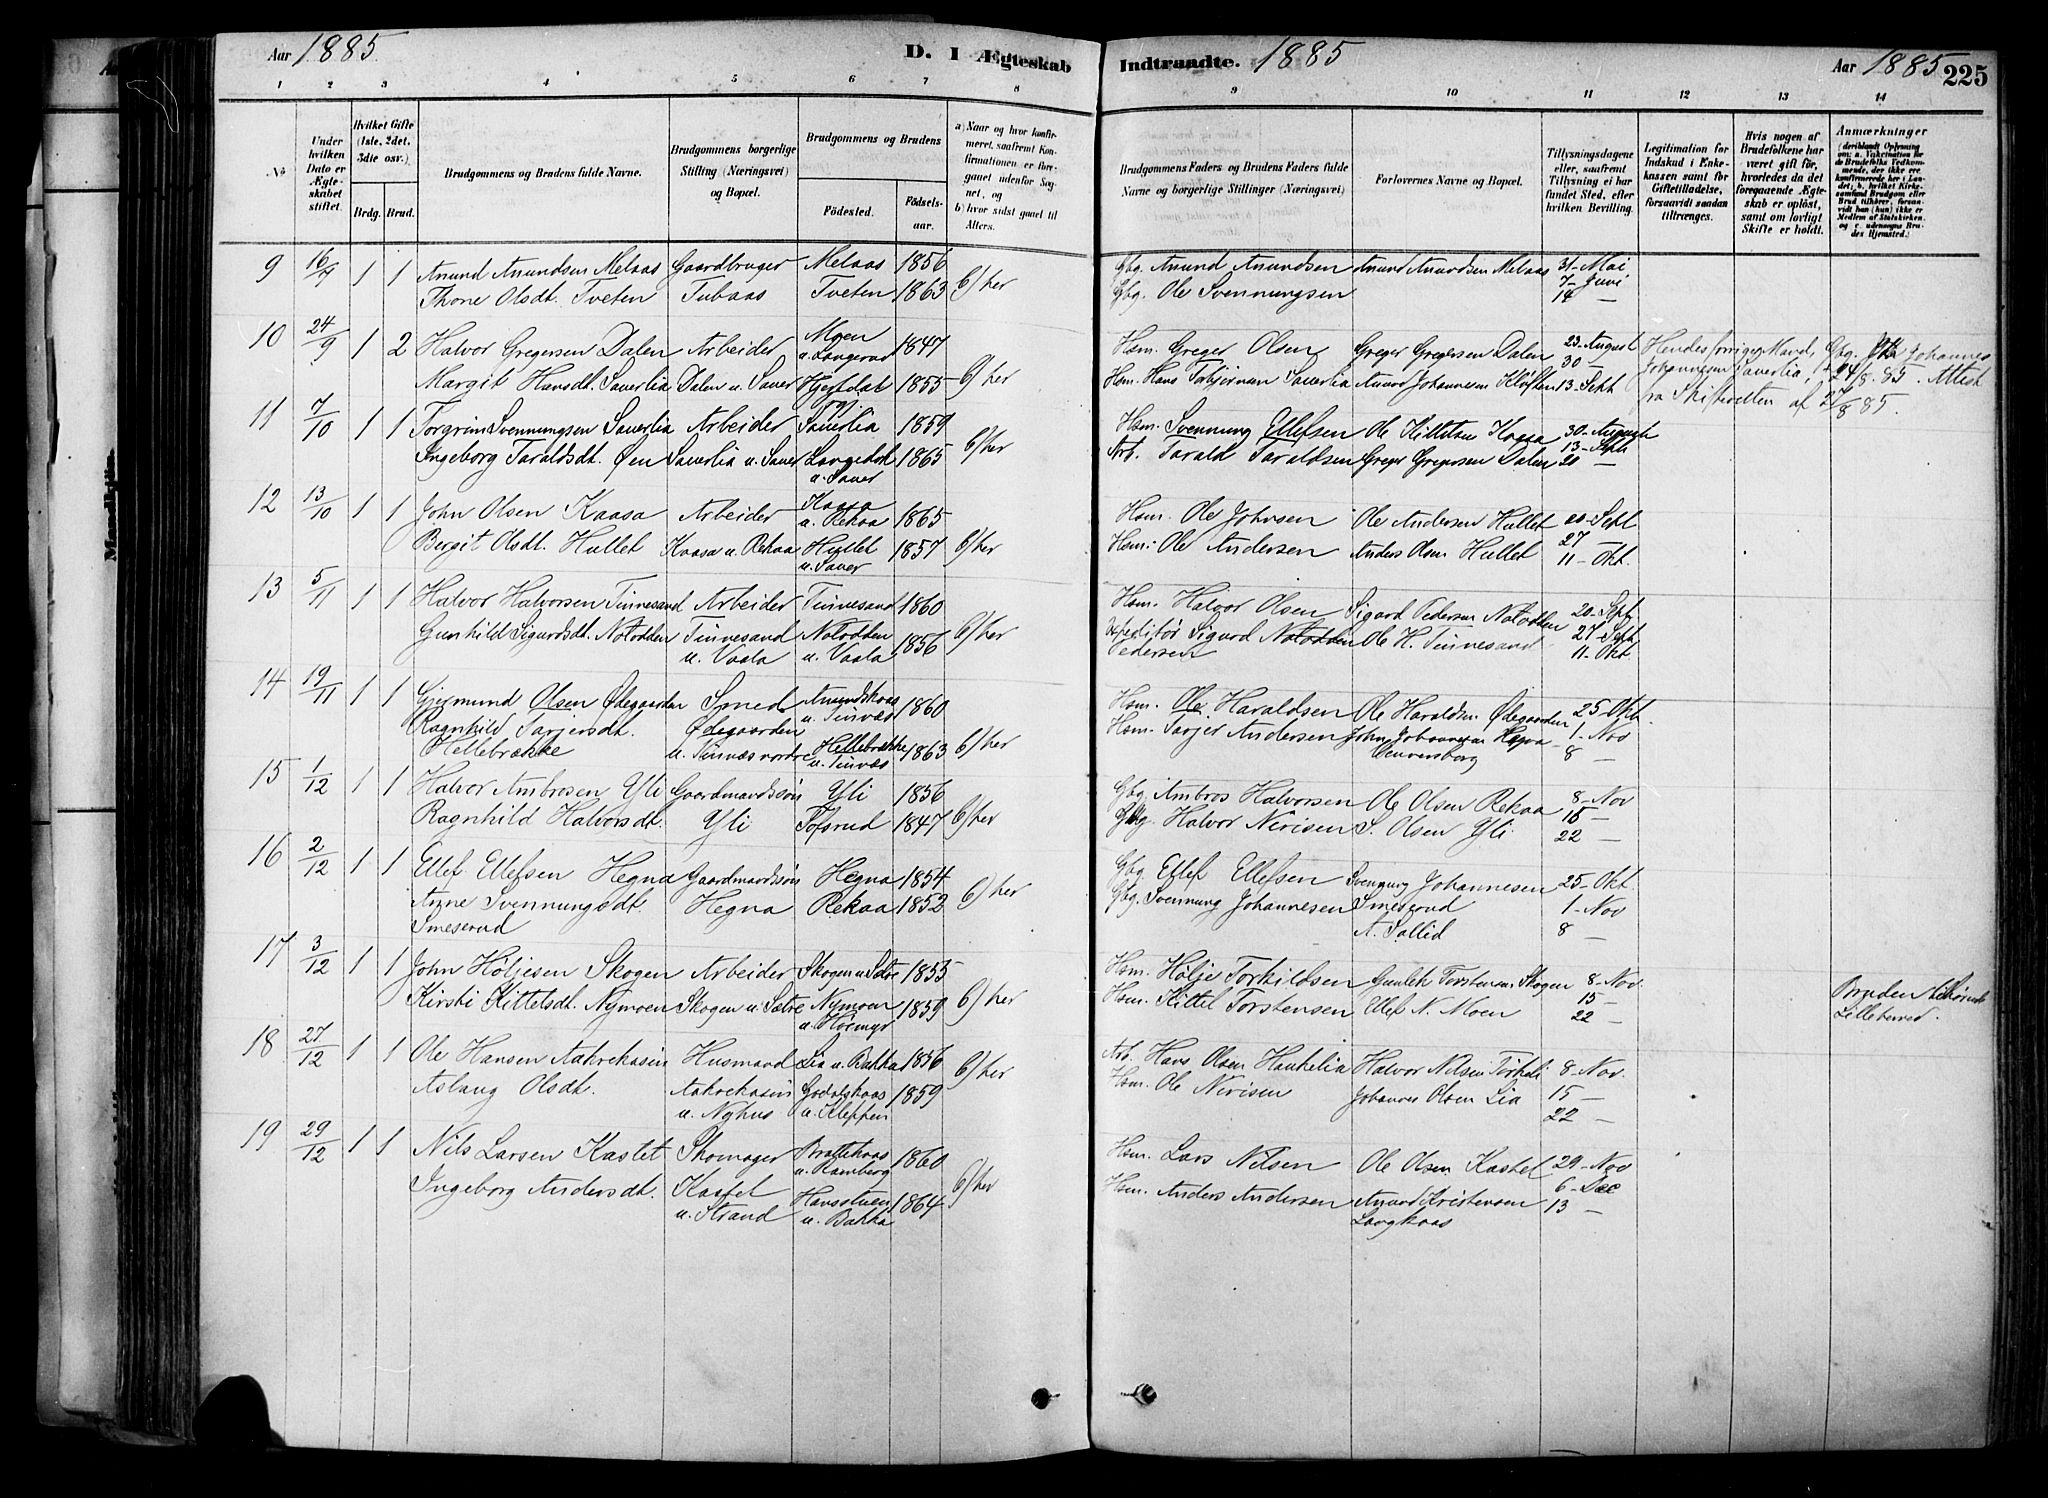 Aar 1885.
D. 1 Ægteskab
Indtraadte. 1885
Aar 1885
225
1 2 3 4 5 6 7 8
9 10 11 12 13 14
No
Under hvilken Dato er Ægteskabet stiftet.
Hvilket Gifte (1ste, 2det, 3die osv.)
Brdg. Brud.
Brudgommens og Brudens fulde Navne.
Brudgommens borgerlige Stilling (Næringsvei) og Bopæl.
Brudgommens og Brudens
Fødested.
Fødselsaar.
a) Naar og hvor konfirmeret, saafremt Konfirmationen er foregaaet udenfor Sognet, og
b) hvor sidst gaaet til Alters.
Brudgommens Faders og Brudens Faders fulde Navne og borgerlige Stillinger (Næringsvei)
Forlovernes Navne og Bopæl.
Tillysningsdagene eller, saafremt Tillysning ei har fundet Sted, efter hvilken Bevilling.
Legitimation for Indskud i Enkekassen samt for Giftetilladelse, forsaavidt saadan tiltrænges.
Hvis nogen af Brudefolkene har været gift før, hvorledes da det foregaaende Ægteskab er opløst, samt om lovligt Skifte er holdt.
Anmærkninger
9 16/7 1 1 Anund Anundsen Melaas Gaardbruger Melaas 1856
Thone Olsdt. Tveten Tubaas Tveten 1863 b) her
Gbg. Anund Anundsen Anund Anundsen Melaas 31- Mai
Gbg. Ole Svennungsen 7- Juni
14 —
10 24/9 1 2 Halvor Gregersen Dalen Arbeider Moen u. Langerud 1847
Margit Hansdt. Sauerlia Dalen u. Sauer Hjertdal 1855 b) her
Hsm. Greger Olsen Greger Gregersen Dalen 23- August
30 —
Hsm. Hans Torbjørnsen Sauerlia Anund Johannesen Kløften 13- Sept
Hendes forrige Mand, Gbg. Johannes
Johannesen Sauerlia, 24/8. 85. Attest
fra Skifteretten af 27/8 85.
11 7/10 1 1 Torgrim Svennungsen Sauerlia Arbeider Sauerlia 1859
Ingeborg Taraldsdt. Øen Sauerlia u. Sauer u. Sauer 1865 b) her
Hsm. Svennung Ellefsen Ole Kittelsen Kaasa 30- August
13- Sept
Arb. Tarald Taraldsen Greger Gregersen Dalen 20 —
12 13/10 1 1 John Olsen Kaasa Arbeider Kaasa u. Rekaa 1865
Bergit Olsdt. Hullet Kaasa u. Rekaa Hullet u. Sauer 1857 b) her
Hsm. Ole Johnsen Ole Andersen Hullet 20- Sept
27
Hsm. Ole Andersen Anders Olsen Hullet 11- Okt.
13 5/11 1 1 Halvor Halvorsen Tinnesand Arbeider Tinnesand 1860
Gunhild Sigurdsdt. Notodden Tinnesand u. Vaala Notodden u. Vaala 1856 b) her
Hsm. Halvor Olsen Sigurd Pedersen Notodden 20- Sept
27- Sept
Expeditør Sigurd Notodden Pedersen Ole H. Tinnesand 11- Okt.
14 19/11 1 1 Gjermund Olsen Ødegaarden Smed Amundskaas u. Tinnæs 1860
Ragnhild Tarjersdt. Hellebrække Ødegaarden u. Tinnæs nordre Hellebrække u. Tinnæs 1863 b) her
Hsm. Ole Haraldsen Ole Haraldsen Ødegaarden 25- Okt.
Hsm. Tarjer Andersen John Johannesen 1- Nov
8 —
15 1/12 1 1 Halvor Ambrosen Yli Gaardmandssøn Yli 1856
Ragnhild Halvorsdt. Yli Tofsrud 1847 b) her
Gbg. Ambros Halvorsen Ole Olsen Rekaa 8- Nov
15 —
Gbg. Halvor Nirisen S. Olsen Yli 22 —
16 2/12 1 1 Ellef Ellefsen Hegna Gaardmandssøn Hegna 1854
Anne Svennungsdt. Smeserud Hegna Rekaa 1852 b) her
Gbg. Ellef Ellefsen Svenung Johannesen Smeserud 25- Okt
Gbg. Svennung Johannesen 1- Nov
A. Sallid 8 —
17 3/12 1 1 John Høljesen Skogen Arbeider Skogen u. Sætre 1855
Kirsti Kittelsdt. Nymoen Skogen u. Sætre Nymoen u. Høimyr 1859 b) her
Hsm. Hølje Torkildsen Gunlek Torstensen Skogen 8- Nov.
15 —
Hsm. Kittel Torstensen Ellef N. Moen 22 —
Bruden
Lilleherred.
18 27/12 1 1 Ole Hansen Aakrekasin Husmand Lia u. Bakka 1856
Aslaug Olsdt. Aakrekasin u. Nyhus Godalskaas u. Kleppen 1859 b) her
Arb. Hans Olsen Haukelia Halvor Nilsen 8- Nov.
Hsm. Ole Nirisen Johannes Olsen Lia 15 —
22 —
19 29/12 1 1 Nils Larsen Kastet Skomager Brattekaas u. Ramberg 1860
Ingeborg Andersdt. Kastet u. Strand Hansstuen u. Bakka 1864 b) her
Hsm. Lars Nilsen Ole Olsen Kastet 29- Nov
6- Dec
Hsm. Anders Andersen Anund Kristensen Langkaas 13 —